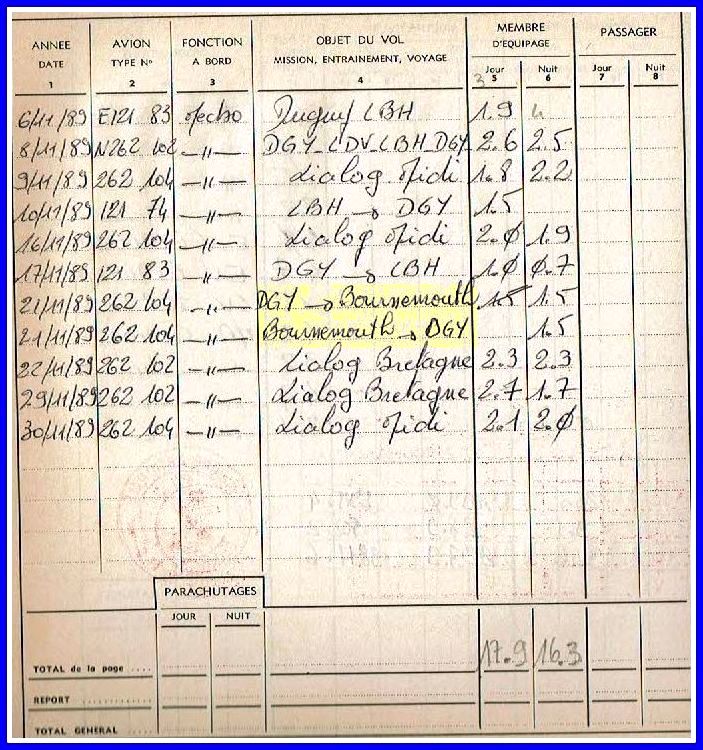 ANNEE DATE AVION TYPE N° FONCTION A BORD OBJET DU VOL MISSION, ENTRAINEMENT, VOYAGE MEMBRE D'EQUIPAGE PASSAGER
Jour Nuit Jour Nuit
1 2 3 4 3 5 6 7 8
6/11/89 E121 83 LBH 1.9
8/11/89 N262 102 -"- DGY_LDV_LBH_DGY 2.6 2.5
9/11/89 262 104 -"- Lialog Midi 1.8 2.2
10/11/89 121 74 -"- LBH → DGY 1.5
16/11/89 262 104 -"- Lialog Midi 2.Ø 1.9
17/11/89 121 83 -"- DGY → LBH 1.Ø Ø.7
21/11/89 262 104 -"- DGY → Bournemouth 1.5 1.5
21/11/89 262 104 -"- Bournemouth → DGY 1.5
22/11/89 262 102 -"- Lialog Bretagne 2.3 2.3
29/11/89 262 102 -"- Lialog Bretagne 2.7 1.7
30/11/89 262 104 -"- Lialog Midi 2.1 2.Ø
PARACHUTAGES
JOUR NUIT
TOTAL de la page .... 17.9 16.3
REPORT ............
TOTAL GENERAL ....